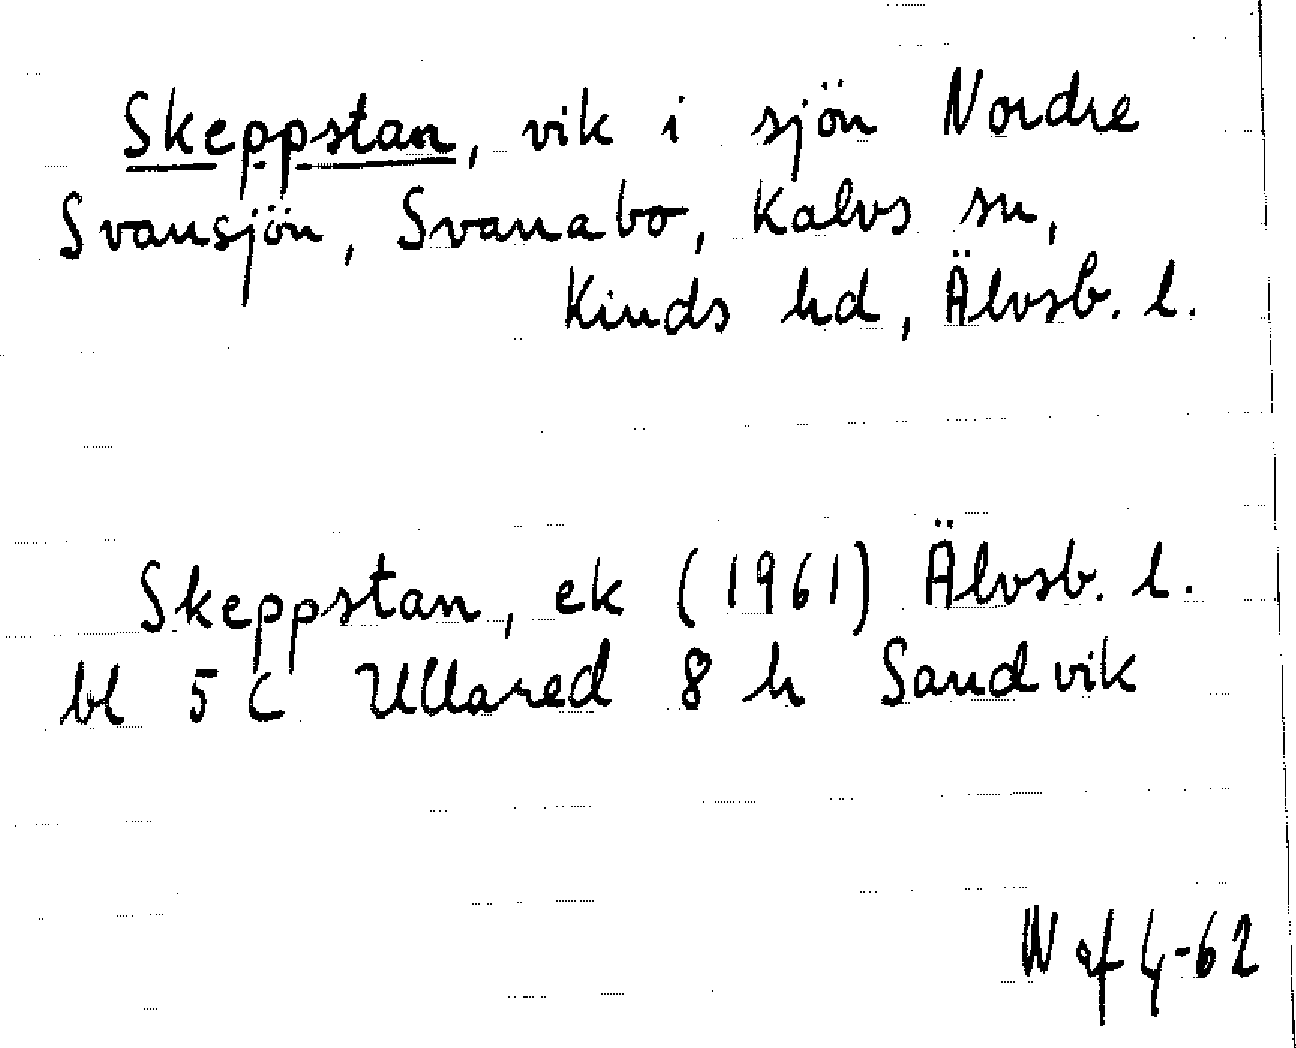 Skeppstan, vik i sjön Nordre
Svansjön, Svanabo, Kalvs sn,
Kinds hd, Älvsb. l.
Skeppstan, ek (1961) Älvsb. l.
bl 5 C Ullared 8 h Sandvik
W af 4-62